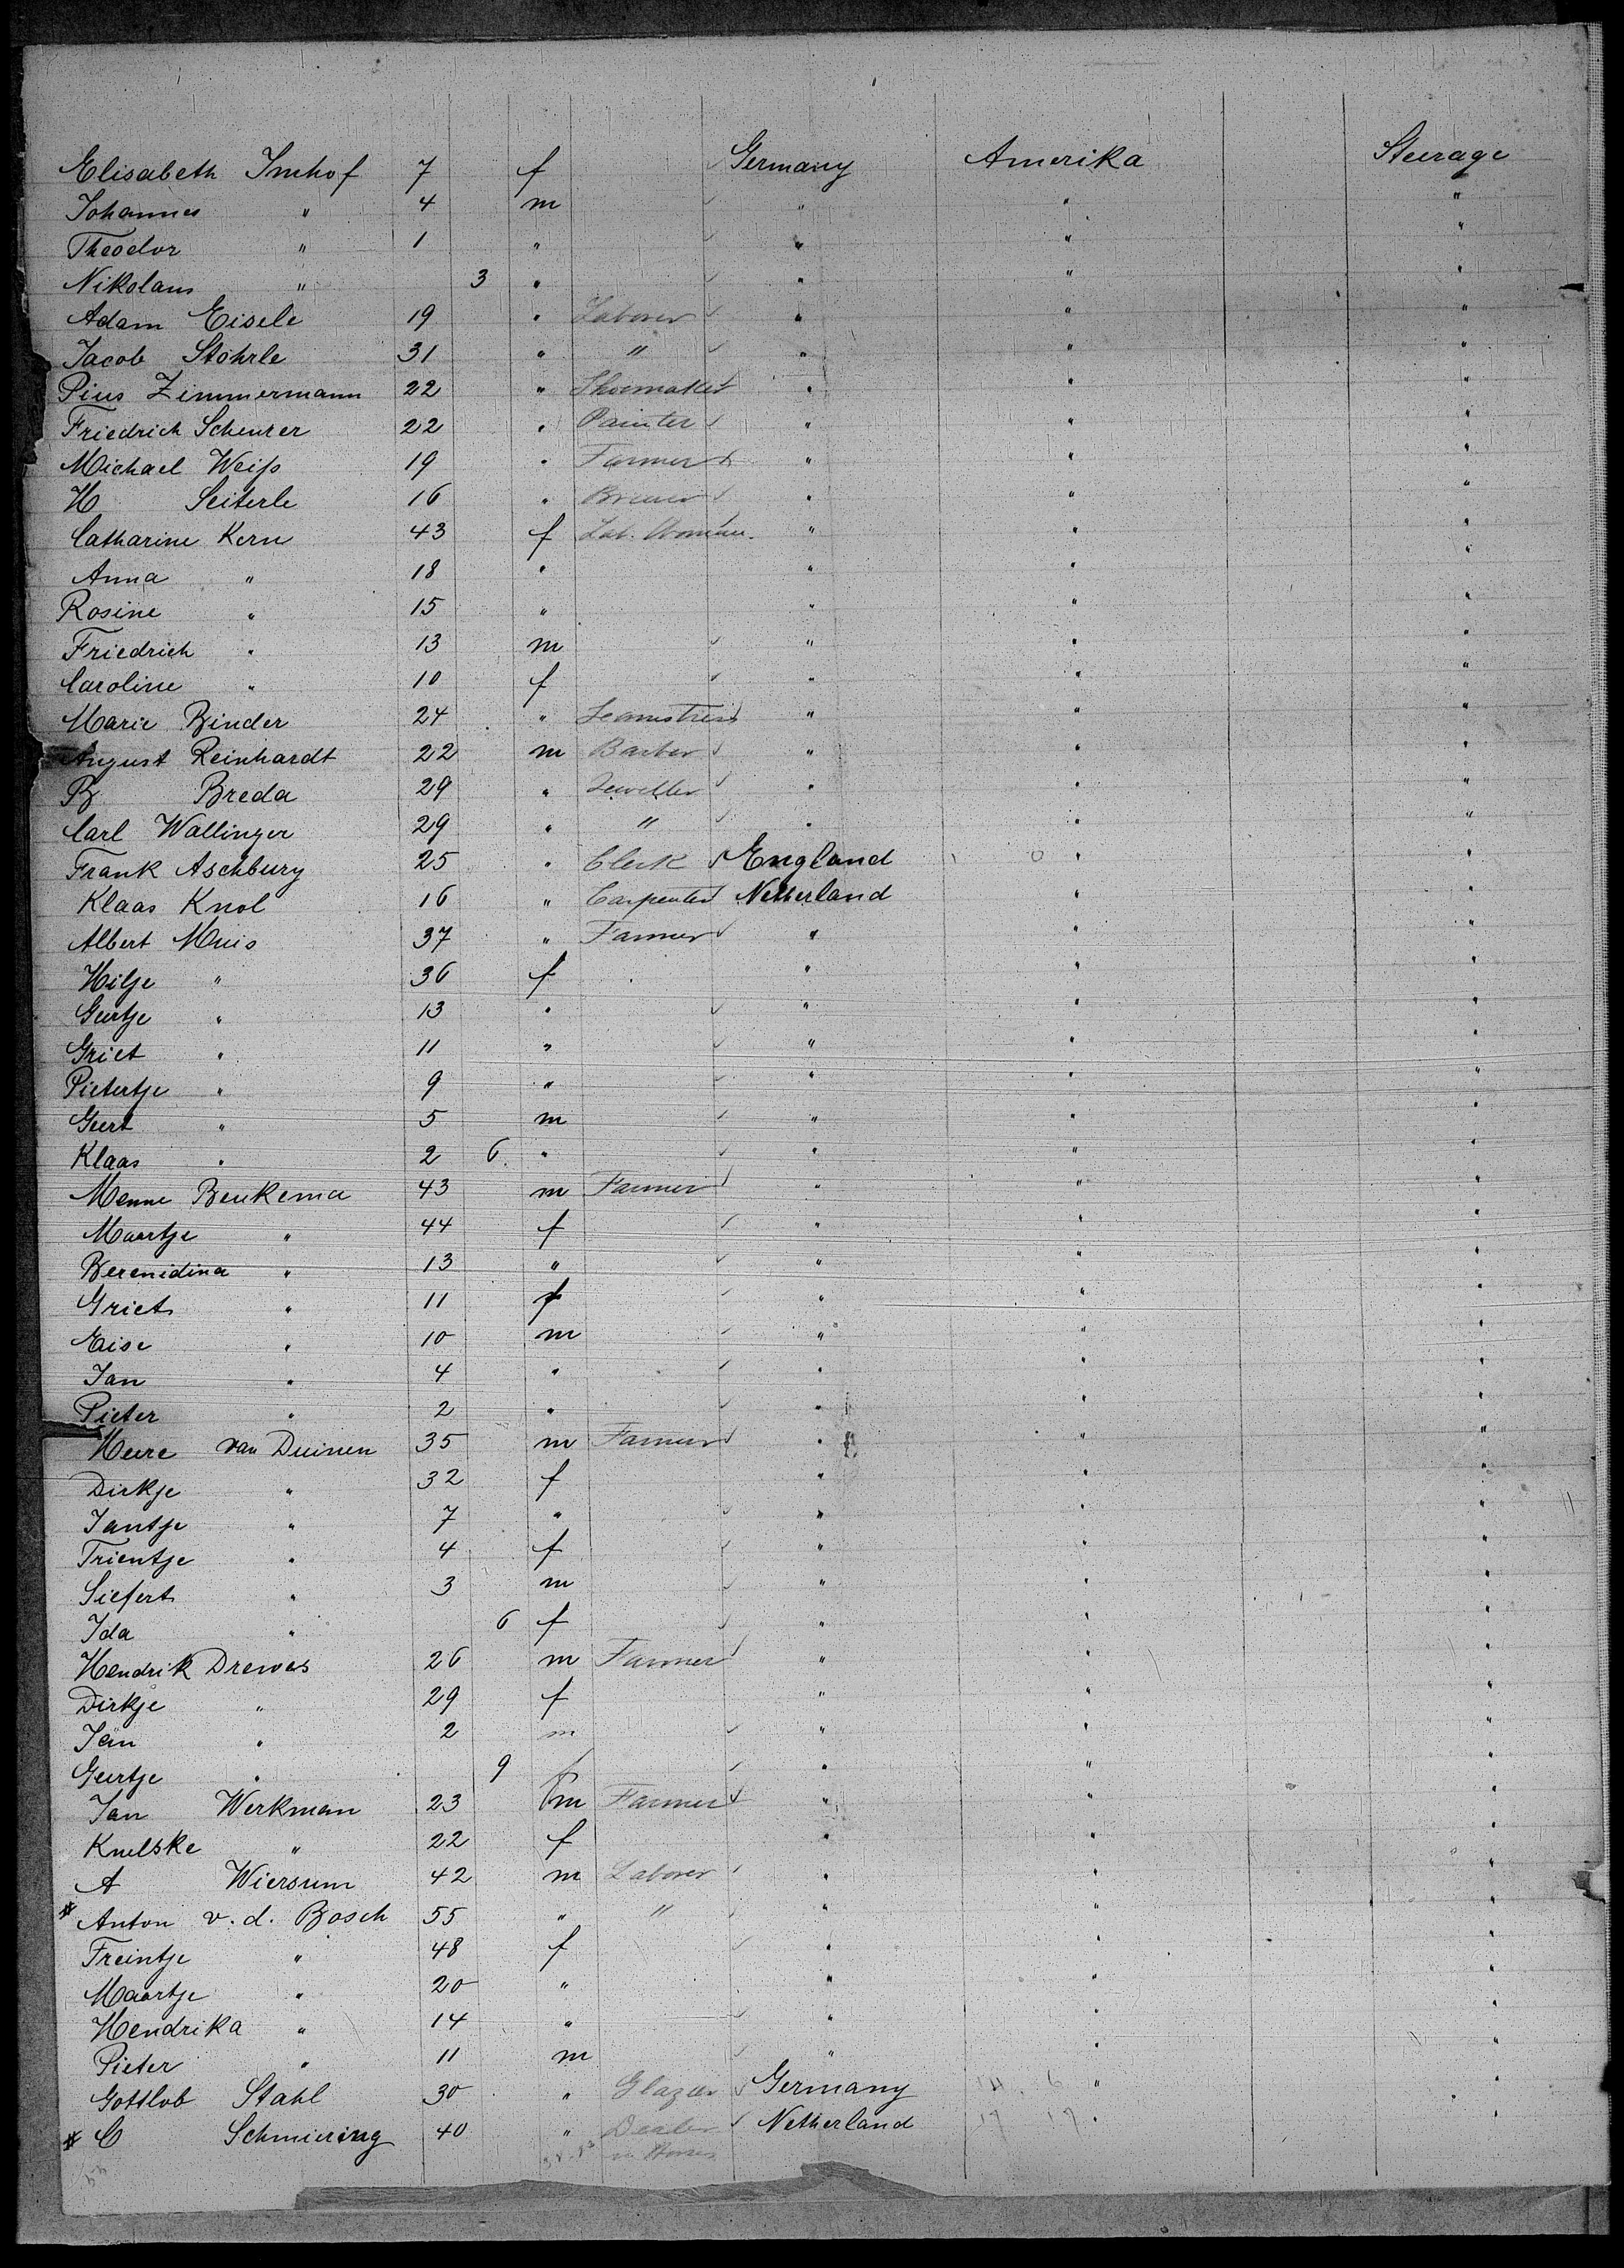 Elisabeth Imhof 7 f Germany Amerika Steerage
Johannes " 4 m " " "
Theodor " 1 " " " "
Nikolaus " 3 " " " "
Adam Eisele 19 " Laborer " " "
Jacob Stöhrle 31 " " " " "
Pius Zimmermann 22 " Shoemaker " " "
Friedrich Scheurer 22 " Painter " " "
Michael Weiß 19 " Farmer " " "
H Seiterle 16 " Brewer " " "
Catharine Kern 43 f Lab. Woman " " "
Anna " 18 " " " "
Rosine " 15 " " " "
Friedrich " 13 m " " "
Caroline " 10 f " " "
Marie Binder 24 " Seamstress " " "
August Reinhardt 22 m Barber " " "
B Breda 29 " Jeweller " " "
Carl Wallinger 29 " " " " "
Frank Aschbury 25 " Clerk England " "
Klaas Knol 16 " Carpenter Netherland " "
Albert Muis 37 " Farmer " " "
Hilje " 36 f " " "
Geertje " 13 " " " "
Griet " 11 " " " "
Pietertje " 9 " " " "
Geert " 5 m " " "
Klaas " 2 6 " " " "
Menne Beukema 43 m Farmer " " "
Maartje " 44 f " " "
Berenidina " 13 " " " "
Griet " 11 f " " "
Eise " 10 m " " "
Jan " 4 " " " "
Pieter " 2 " " " "
Heere van Duinen 35 m Farmer " " "
Dirkje " 32 f " " "
Jantje " 7 " " " "
Trientje " 4 f " " "
Siefert " 3 m " " "
Ida " 6 f " " "
Hendrik Drewes 26 m Farmer " " "
Dirkje " 29 f " " "
Jan " 2 m " " "
Geertje " 9 f " " "
Jan Werkman 23 m Farmer " " "
Knelske " 22 f " " "
A Wiersum 42 m Laborer " " "
# Anton v. d. Bosch 55 " " " " "
Freintje " 48 f " " "
Maartje " 20 " " " "
Hendrika " 14 " " " "
Pieter " 11 m " " "
Gottlob Stahl 30 " Glazier Germany " "
# C Schmiering 40 " Dealer Netherland " "
in Horses